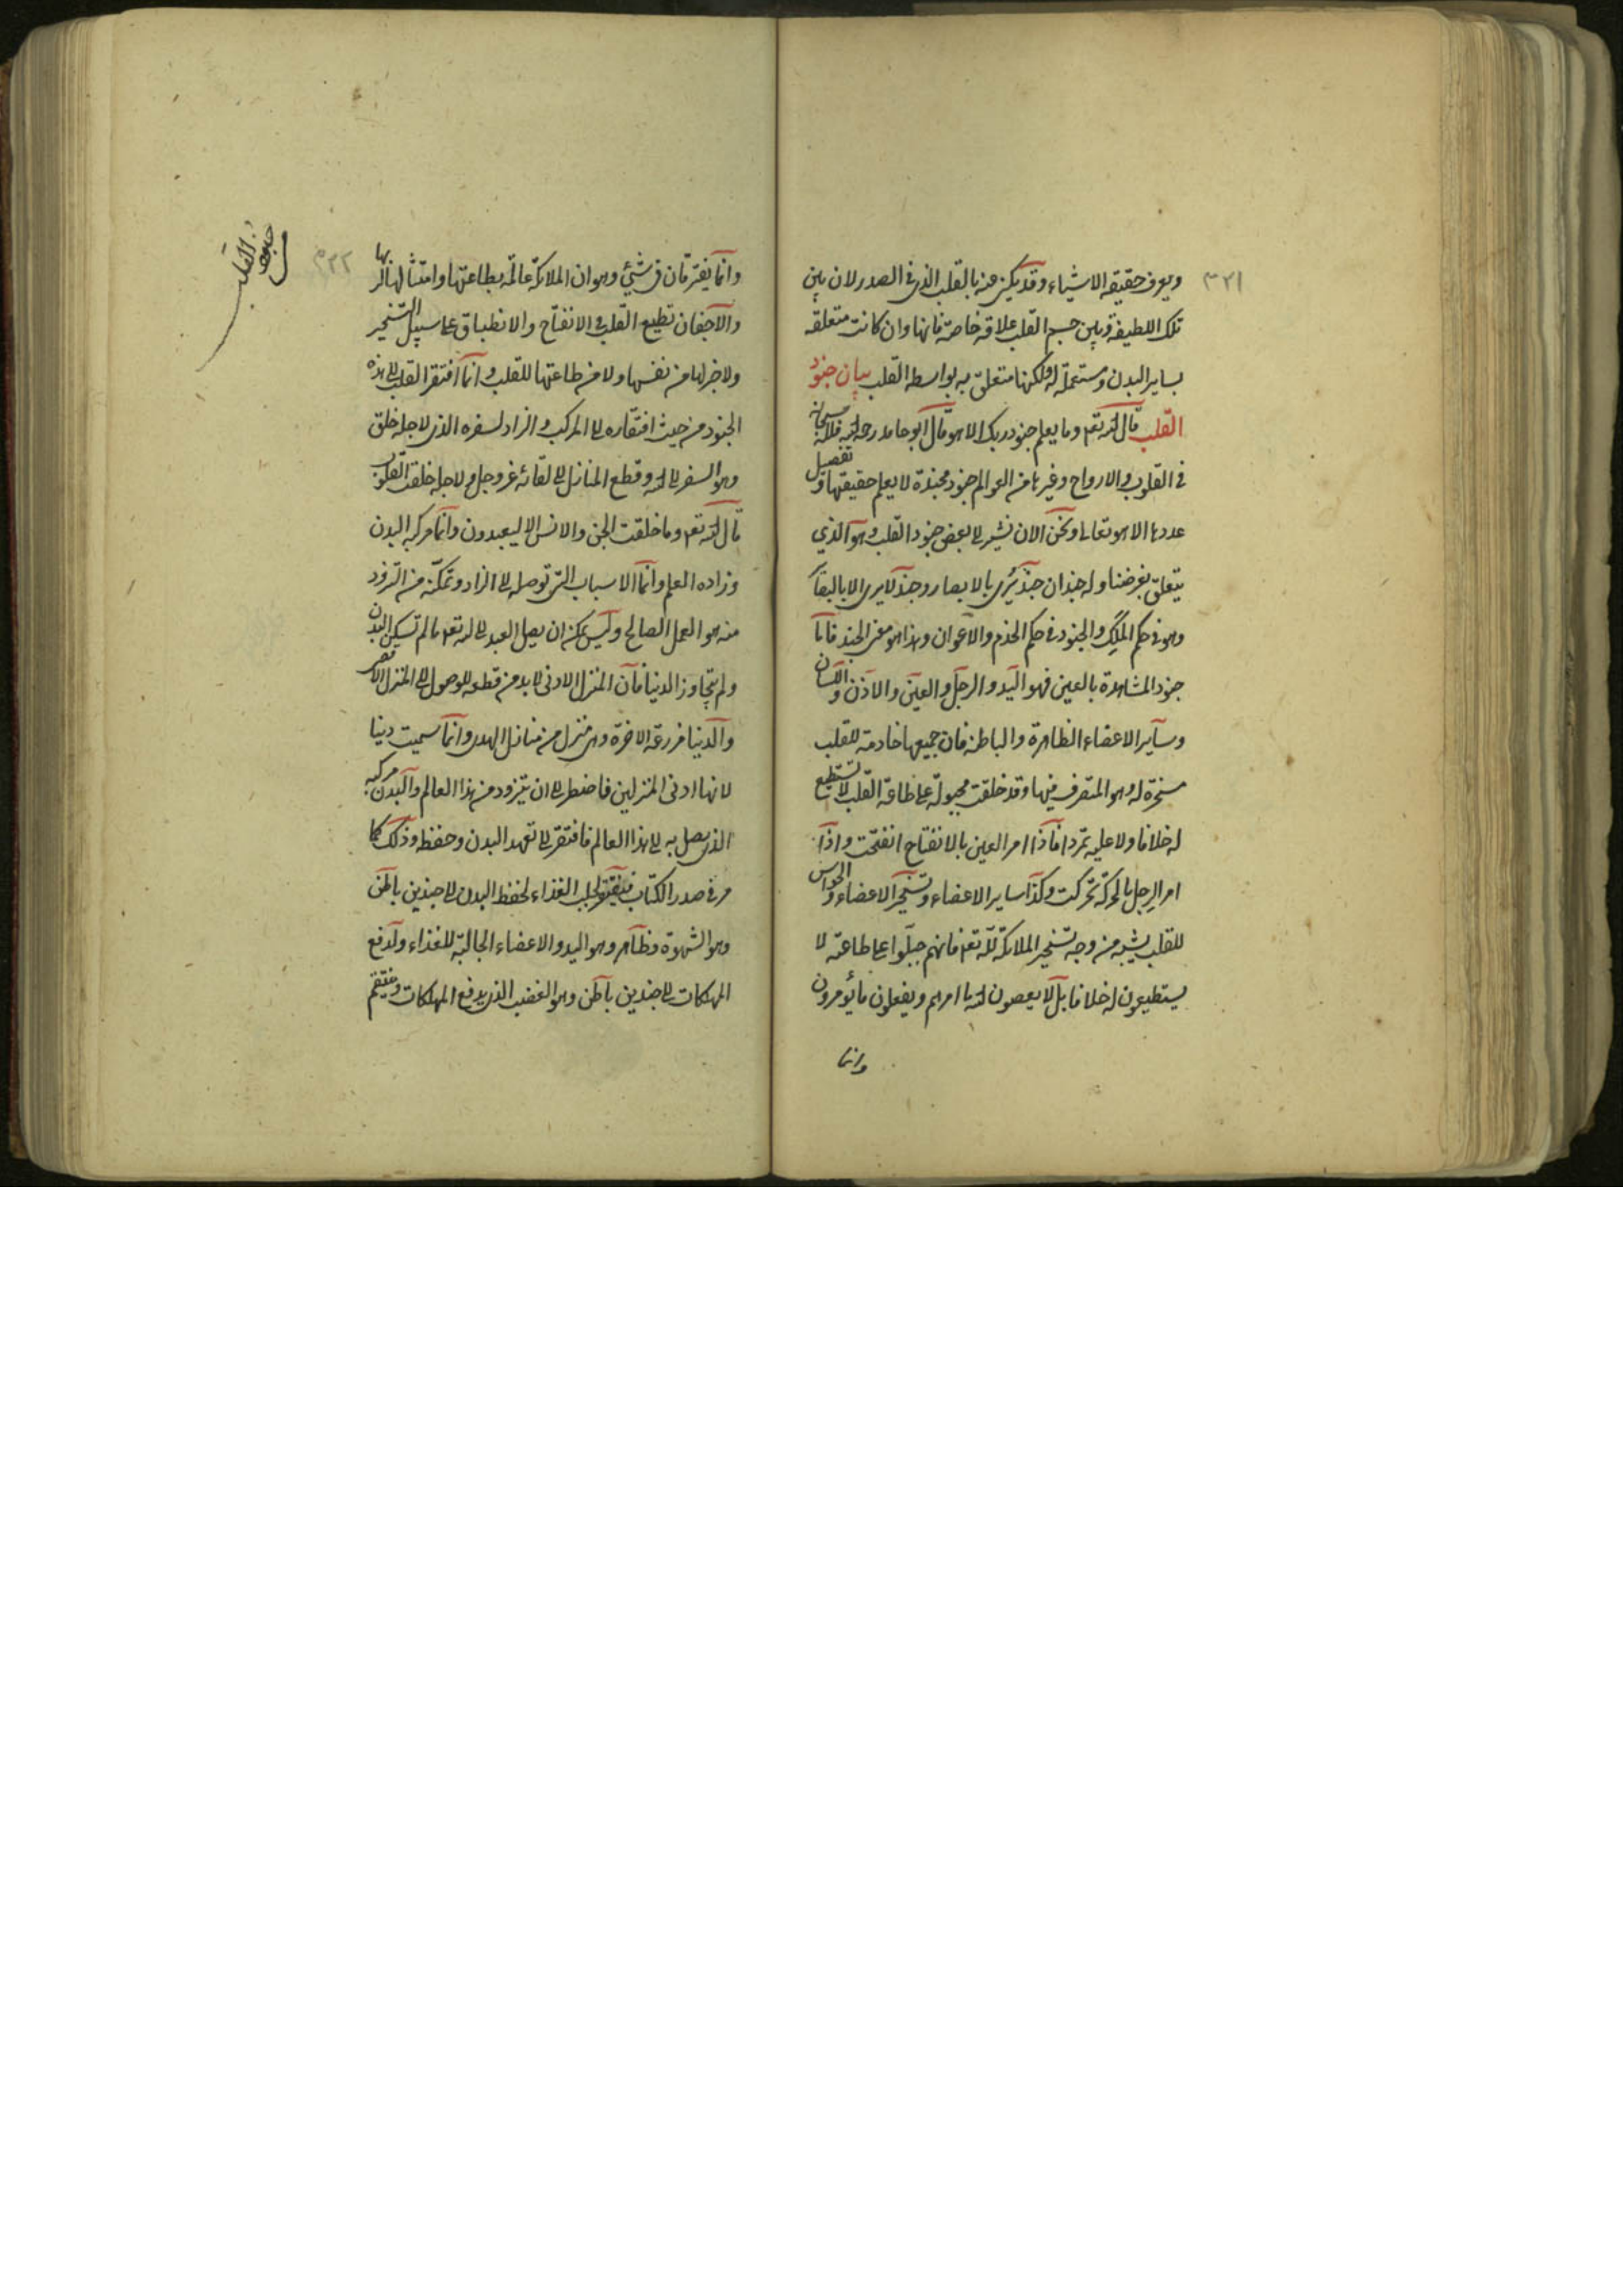 ٣٢١
ويعرف حقيقة الاشياء وقد يكنى عنه بالقلب الذى فى الصدر لان بين
تلك اللطيفة وبين جسم القلب علاقة خاصة فانها وان كانت متعلقة
بساير البدن ومستعملة له ولكنها متعلق به بواسطة القلب بيان جنود
القلب قال الله تع وما يعلم جنود ربك الا هو قال ابو حامد رحمه الله فلله سبحانه
فى القلوب والارواح وغيرها من العوالم جنود مجندة لا يعلم حقيقتها وتفصيل
عددها الا هو تعالى ونحن الان نشير الى بعض جنود القلب وهو الذي
يتعلق بغرضنا وله جندان جند يرى بالابصار وجند لا يرى الا بالبصائر
وهو فى حكم الملك والجنود فى حكم الخدم والاعوان وهذا هو معنى الجند فاما
جنوده المشاهدة بالعين فهو اليد والرجل والعين والاذن واللسان
وساير الاعضاء الظاهرة والباطنة فان جميعها خادمة للقلب
مسخرة له وهو المتصرف فيها وقد خلقت مجبولة على طاعة القلب لا تستطيع
له خلافا ولا عليه تمردا فاذا امر العين بالانفتاح انفتحت واذا
امر الرجل بالحركة تحركت وكذا ساير الاعضاء وتسخير الاعضاء والحواس
للقلب يشبه من وجه تسخير الملائكة لله تع فانهم جبلوا على طاعته لا
يستطيعون له خلافا بل لا يعصون الله ما امرهم ويفعلون ما يؤمرون
وانما
٣٢٢
جنود القلب
وانما يفترقان فى شيئ وهو ان الملائكة عالمة بطاعتها وامتثالها لربها
والاجفان تطيع القلب فى الانفتاح والانطباق على سبيل التسخير
ولا خبر لها من نفسها ولا من طاعتها للقلب وانما افتقر القلب الى هذه
الجنود من حيث افتقاره الى المركب والزاد لسفره الذى لاجله خلق
وهو السفر الى الله وقطع المنازل الى لقائه عز وجل ولاجله خلقت القلوب
قال الله تع وما خلقت الجن والانس الا ليعبدون وانما مركبه البدن
وزاده العلم وانما الاسباب التى توصله الى الزاد وتمكنه من التزود
منه هو العمل الصالح وليس يمكن ان يصل العبد الى الله تع ما لم تسكن البدن
ولم يتجاوز الدنيا فان المنزل الادنى لا بد من قطعه للوصول الى المنزل الاقصى
والدنيا مزرعة الاخرة وهى منزل من منازل الهدى وانما سميت دنيا
لانها ادنى المنزلين فاضطر الى ان يتزود من هذا العالم والبدن مركبه
الذى يصل به الى هذا العالم فافتقر الى تعهد البدن وحفظه وذلك كما
مر فى صدر الكتاب فيفتقر لجلب الغذاء لحفظ البدن الى جندين باطن
وهو الشهوة وظاهر وهو اليد والاعضاء الجالبة للغذاء ولدفع
المهلكات الى جندين باطن وهو الغضب الذى يدفع المهلكات وينتقم